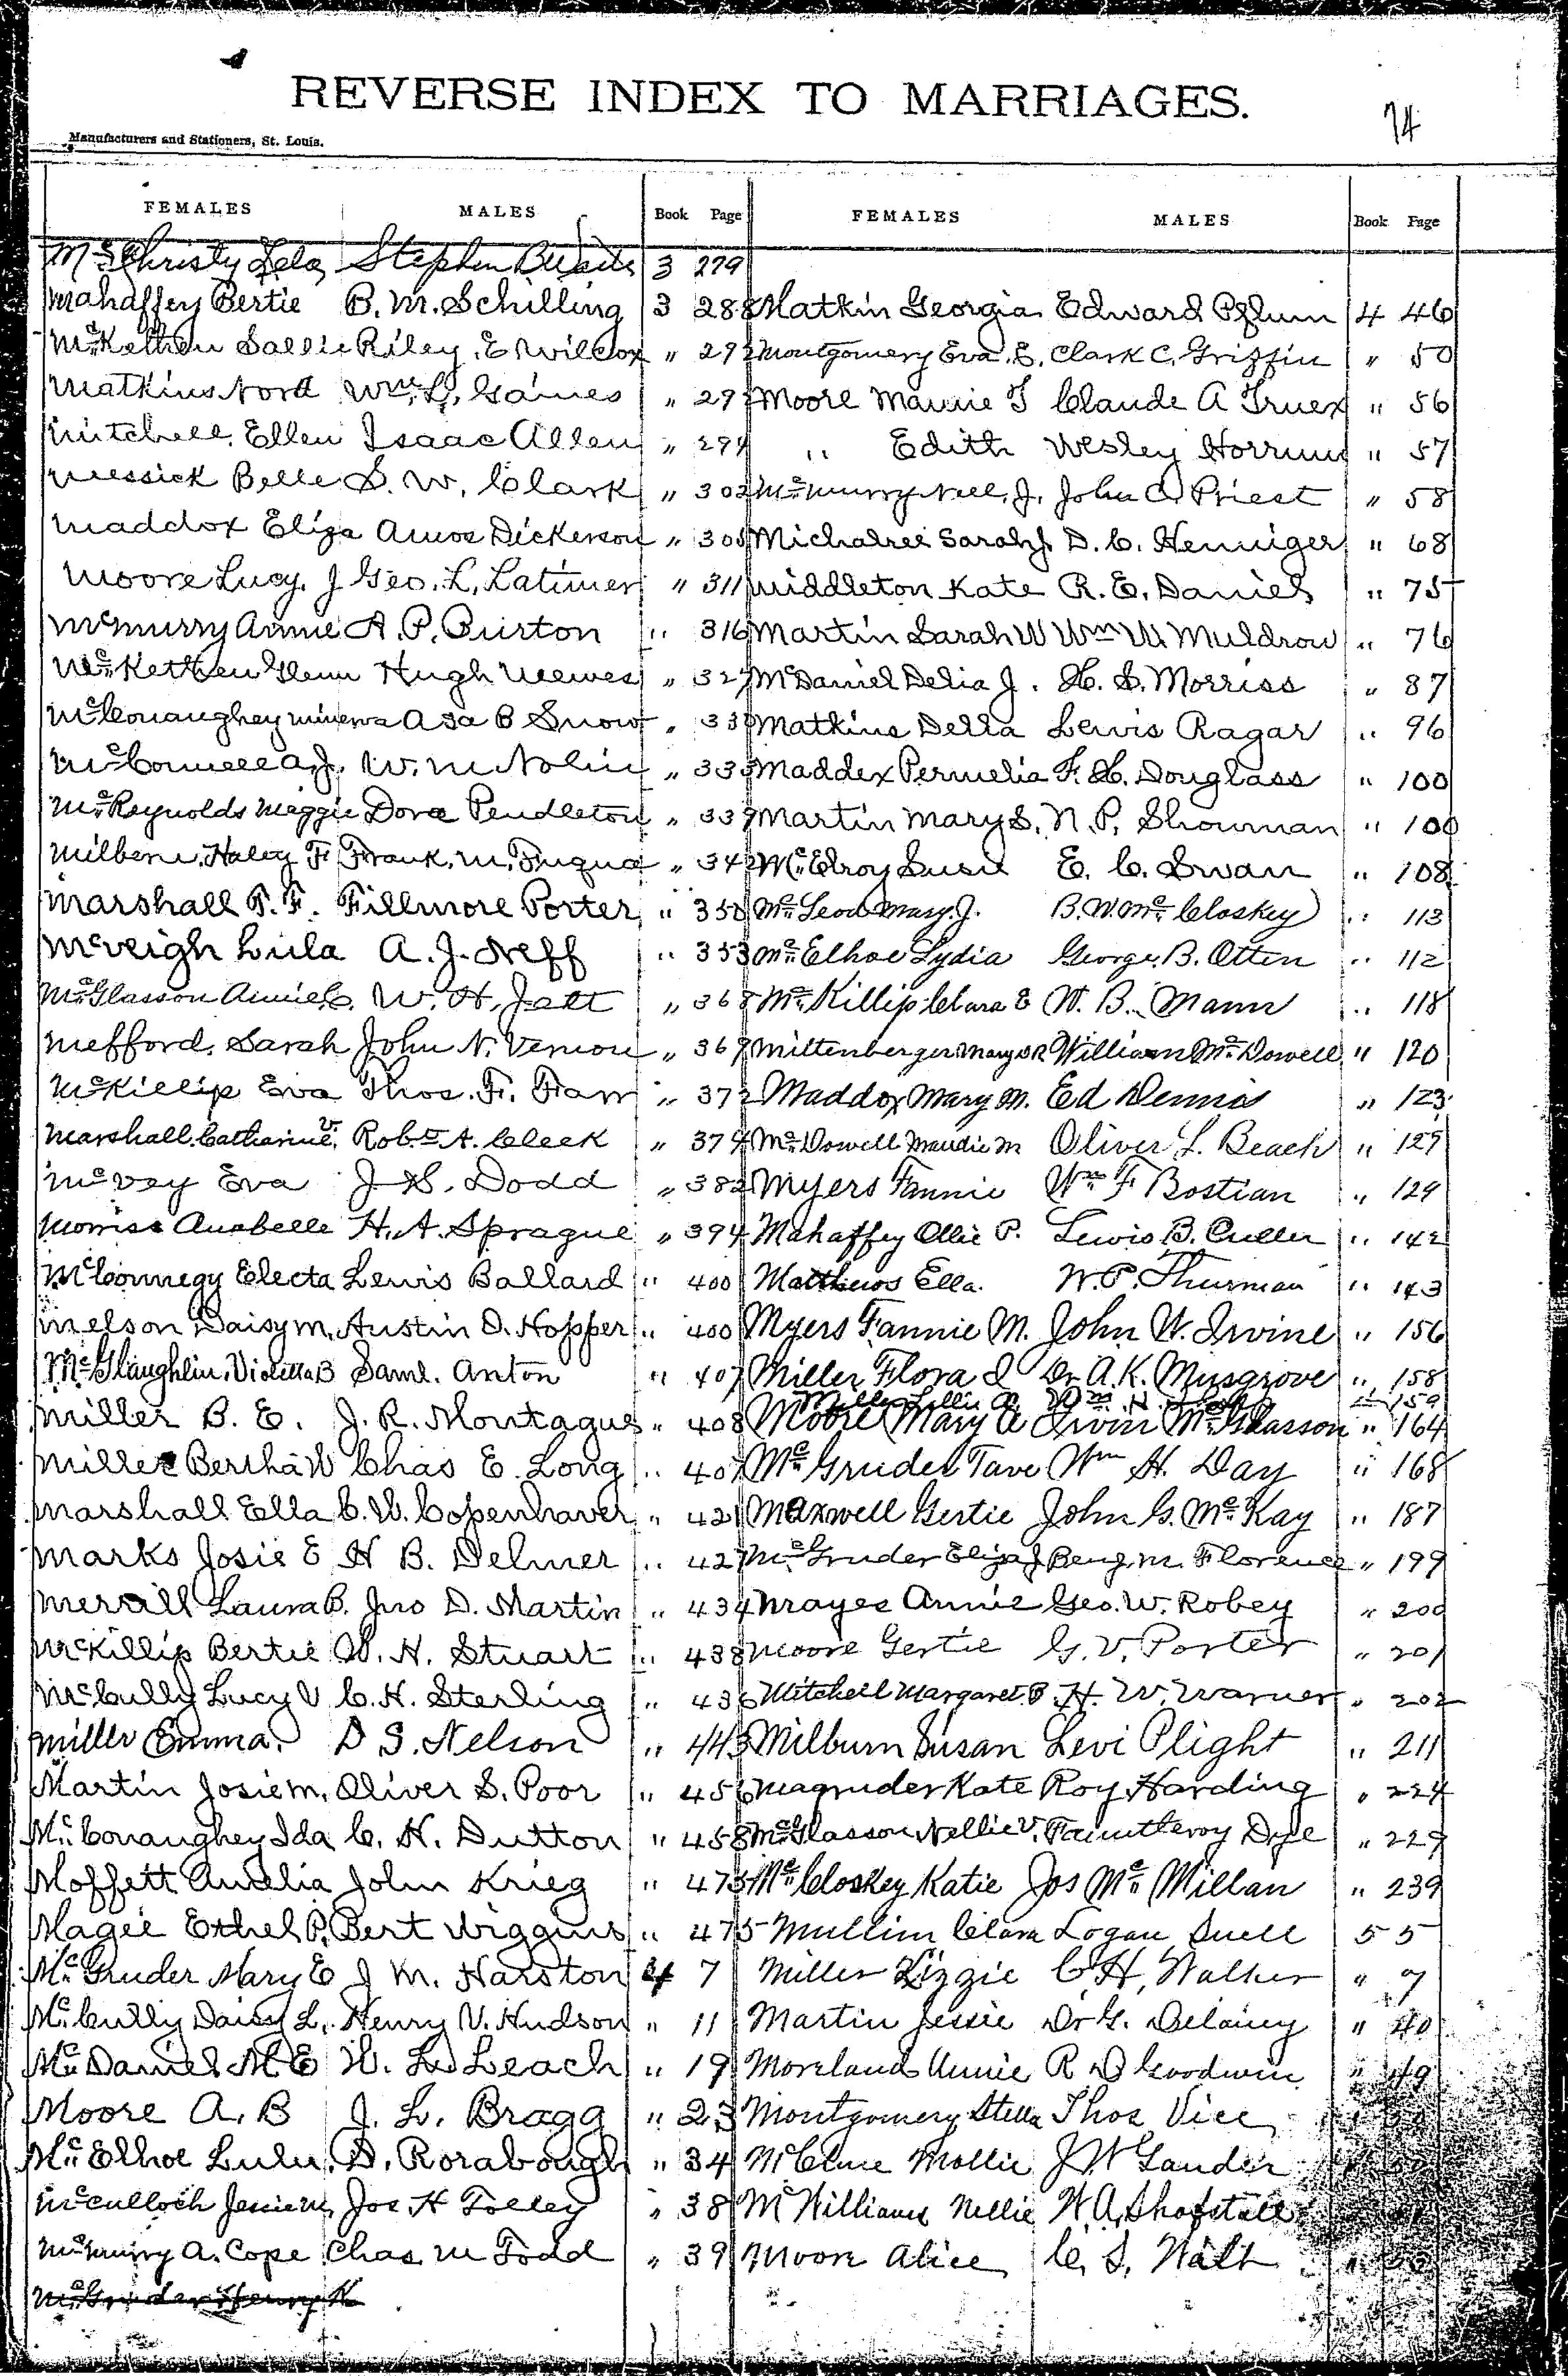 REVERSE INDEX TO MARRIAGES.
74
Manufacturers and Stationers, St. Louis.
FEMALES MALES Book Page FEMALES MALES Book Page
McChristy Lela Stephen 3 279
Mahaffey Bertie B. M. Schilling 3 288 Matkin Georgia Edward Pflum 4 46
Sallie Riley E Wilcox " 292 Montgomery Eva E. Clark C. Griffin " 50
Matkins Nora Wm. L. Gaines " 293 Moore Mamie T Claude A Truex " 56
Mitchell Ellen Isaac Allen " 294 " Edith Wesley " 57
Messick Belle S. W. Clark " 302 McMurry Nell J. John C. Priest " 58
Maddox Eliza Amos Dickerson " 305 Sarah J. D. C. Henniger " 68
Moore Lucy J Geo. L. Latimer " 311 Middleton Kate R. E. Daniel " 75
McMurry Annie A. P. Burton " 316 Martin Sarah W Wm W. Muldrow " 76
Glenn Hugh " McDaniel Delia J. H. S. Morriss " 87
McConaughey Minerva Asa B Snow " Matkins Della Lewis Ragar " 96
McConnell A. J. W. M Nolin " 333 Maddex Permelia F. H. Douglass " 100
McReynolds Maggie Dora Pendleton " 339 Martin Mary S. N. P. Showman " 100
Haley F Frank M. Fuqua " 342 McElroy Susie E. C. Swan " 108
Marshall F. F. Fillmore Porter " 350 McLeod Mary J. B. W. McCloskey " 113
McVeigh Lula A. J. Neff " 353 McElhoe Lydia George B. Otten " 112
McGlasson Annie C. W. H. Jett " 368 McKillip Clara E W. B. Mann " 118
Mefford Sarah John N. Vernon " 369 Miltenberger Mary William McDowell " 120
McKillip Eva Thos. F. Farr " 372 Maddox Mary M. Ed Dennis " 123
Marshall Catharine V. Robt A. Cleek " 374 McDowell Maudie M Oliver L. Beach " 127
McVey Eva J S. Dodd " 382 Myers Fannie Wm F Bostian " 129
Morriss Anabelle H. A. Sprague " 394 Mahaffey Ollie P. Lewis B. Culler " 142
McConnegy Electa Lewis Ballard " 400 Matthews Ella. W. P. Thurman " 143
Melson Daisy M. Austin D. Hopper " 400 Myers Fannie M. John W. Irvine " 156
McGlaughlin Violetta B Saml. Anton " 407 Miller Flora I Dr A. K. Musgrove " 158
Miller Wm H. " 159
Miller B. E. J. R. Montague " 408 Moore Mary A Irvin McGlasson " 164
Miller Bertha W Chas E. Long " 407 McGruder Tave Wm H. Day " 168
Marshall Ella C. W. Copenhaver " 421 Maxwell Gertie John G. McKay " 187
Marks Josie E H B. Delmer " 427 McGruder Eliza J Benj. M. Florence " 199
Merrill Laura B. Jno D. Martin " 434 Mayes Annie Geo. W. Robey " 200
McKillip Bertie W. H. Stuart " 438 Moore Gertie G. V. Porter " 201
McCully Lucy V C. H. Sterling " 436 Mitchell Margaret P. H. W. Warner " 202
Miller Emma. D S. Nelson " 443 Milburn Susan Levi Plight " 211
Martin Josie M. Oliver S. Poor " 456 Magruder Kate Roy Harding " 224
McConaughey Ida C. H. Dutton " 458 McGlasson Nellie V. Fauntleroy Dye " 229
Moffett Amelia John Krieg " 473 McCloskey Katie Jos McMillan " 239
Magee Ethel P. Bert Wiggins " 475 Mullim Clara Logan Suell 5 5
McGruder Mary E J M. Harston 4 7 Miller Lizzie C. H. Walker " 7
McCully Daisy L. Henry V. Hudson " 11 Martin Jessie Dr G. Delaney " 40
McDaniel M E W. L. Leach " 19 Moreland Annie R D Goodwin " 49
Moore A. B J. L. Bragg " 23 Montgomery Stella Thos Vice
McElhoe Lulu D. Rorabough " 34 McClure Mollie J. W Lander
McCulloch Jessie M. Jos H Tolley " 38 McWilliams Nellie W. A. Shofstall
A. Cope Chas M Todd " 39 Moore Alice C. S. Walt
McGruder Henry H